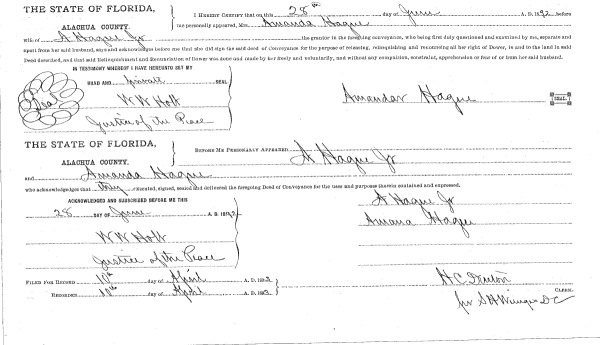 THE STATE OF FLORIDA,
ALACHUA COUNTY.
I HEREBY CERTIFY that on this 28th day of June A. D. 1892 before
me personally appeared, Mrs. Amanda Hague
wife of A Hague Jr the grantor in the foregoing conveyance, who being first duly questioned and examined by me, separate and
apart from her said husband, and acknowledges before me that she did sign the said deed of Conveyance for the purpose of releasing, relinquishing and renouncing all her right of Dower, in and to the land in said
Deed described, and that said Relinquishment and Renunciation of Dower was done and made by her freely and voluntarily, and without any compulsion, constraint, apprehension or fear of or from her said husband.
IN TESTIMONY WHEREOF I HAVE HEREUNTO SET MY
HAND AND private SEAL
Seal
W W Holt
Amandar Hague SEAL
Justice of the Peace
THE STATE OF FLORIDA,
ALACHUA COUNTY.
BEFORE ME PERSONALLY APPEARED A Hague Jr
and Amanda Hague
who acknowledges that they executed, signed, sealed and delivered the foregoing Deed of Conveyance for the uses and purposes therein contained and expressed.
ACKNOWLEDGED AND SUBSCRIBED BEFORE ME THIS
A Hague Jr
28 DAY OF June A. D. 1892
Amana Hague
W W Holt
Justice of the Peace
FILED FOR RECORD 10th day of April A. D. 1893
RECORDED 10th day of April A. D. 1893
H. C. Denton CLERK.
per D C